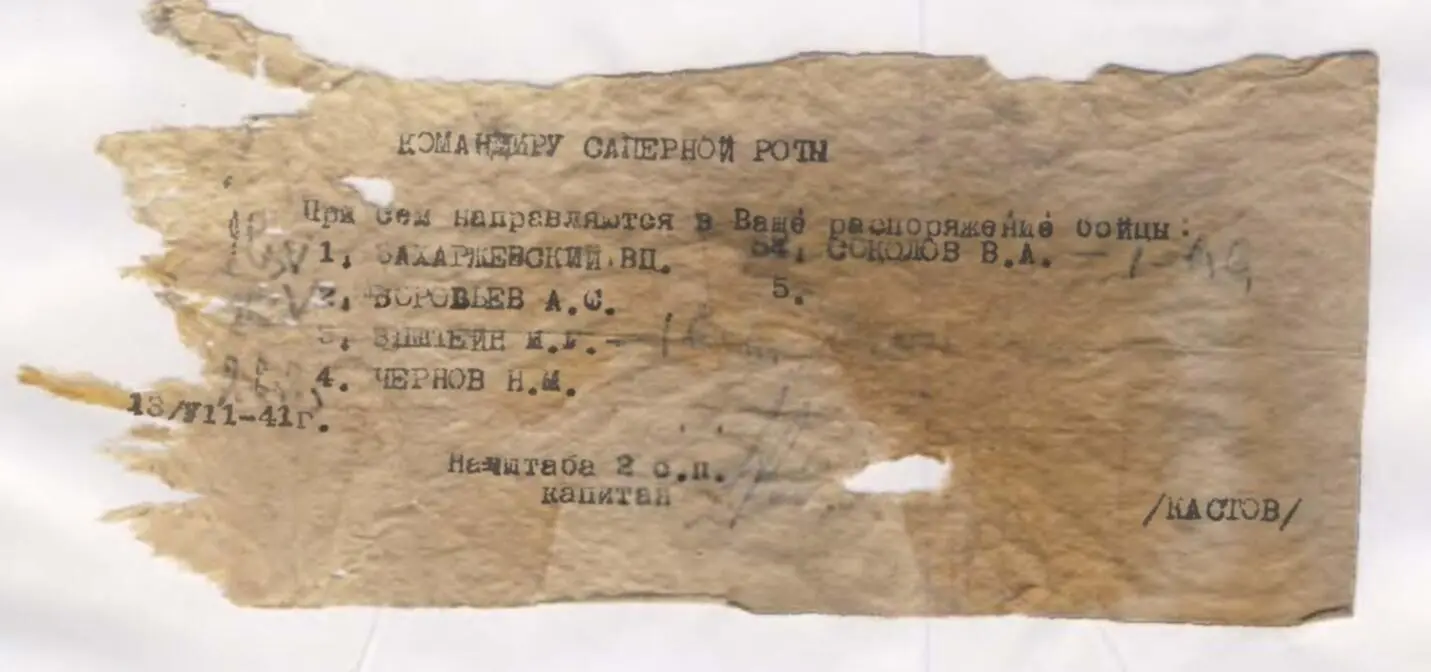 КОМАНДИРУ САПЕРНОЙ РОТЫ
При сем направляются в Ваше распоряжение бойцы:
1, ЗАХАРЖЕВСКИЙ ВП. 54, СОКОЛОВ В.А.
2, ВОРОВЬЕВ А.С. 5.
3, ЭПШТЕЙН
4. ЧЕРНОВ Н.М.
13/VII-41г.
Начштаба 2 с.п.
капитан
/КАСТОВ/